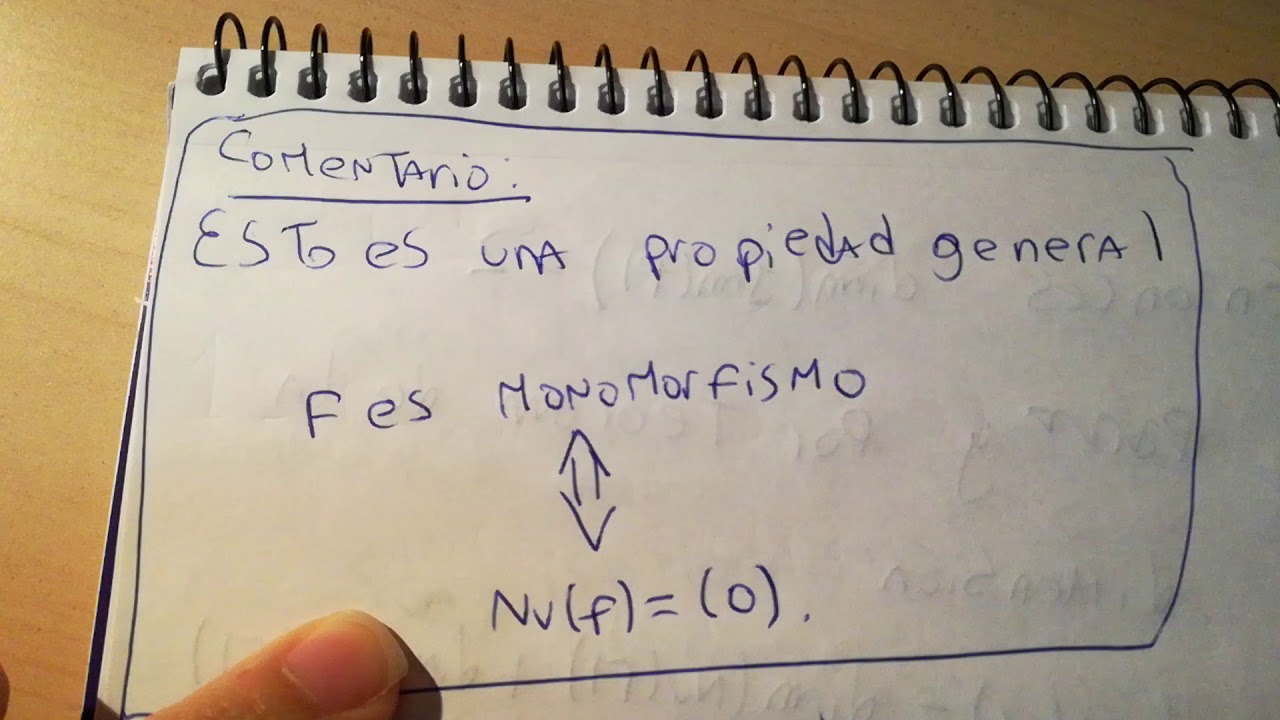 Comentario:
Esto es una propiedad general
F es monomorfismo
⇕
Nu(f)=(0).